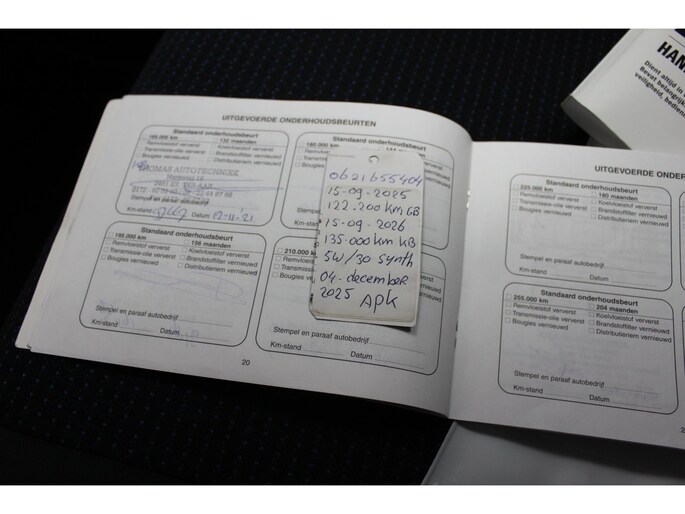 UITGEVOERDE ONDERHOUDSBEURTEN
Standaard onderhoudsbeurt
165.000 km
132 maanden
Remvloeistof ververst
Koelvloeistof ververst
Transmissie-olie ververst
Brandstoffilter vernieuwd
Bougies vernieuwd
Distributieriem vernieuwd
THOMAS AUTOTECHNIEK
Stempel en paraaf autobedrijf
Km-stand
Datum 12-11-'21
Standaard onderhoudsbeurt
195.000 km
156 maanden
Remvloeistof ververst
Koelvloeistof ververst
Transmissie-olie ververst
Brandstoffilter vernieuwd
Bougies vernieuwd
Distributieriem vernieuwd
Stempel en paraaf autobedrijf
Km-stand
Datum
Standaard onderhoudsbeurt
180.000 km
Remvloeistof
Transmissie
Bougies
Stempel
Km-stand
210.000
Remvloei
Transmiss
Bougies v
Stempel en paraaf autobedrijf
Km-stand
Datum
20
0621655404
15-09-2025
122.200 km GB
15-09-2026
135.000 km KB
5W/30 synth
04-december
2025 APK
UITGEVOERDE ONDER
Standaard onderhoudsbeurt
225.000 km
180 maanden
Remvloeistof ververst
Koelvloeistof ververst
Transmissie-olie ververst
Brandstoffilter vernieuwd
Bougies vernieuwd
Distributieriem vernieuwd
Stempel en paraaf autobedrijf
Km-stand
Datum
Standaard onderhoudsbeurt
255.000 km
204 maanden
Remvloeistof ververst
Koelvloeistof ververst
Transmissie-olie ververst
Brandstoffilter vernieuwd
Bougies vernieuwd
Distributieriem vernieuwd
Stempel en paraaf autobedrijf
Km-stand
Datum
HAN
Dient altijd in
Bevat belangrijk
veiligheid, bedien